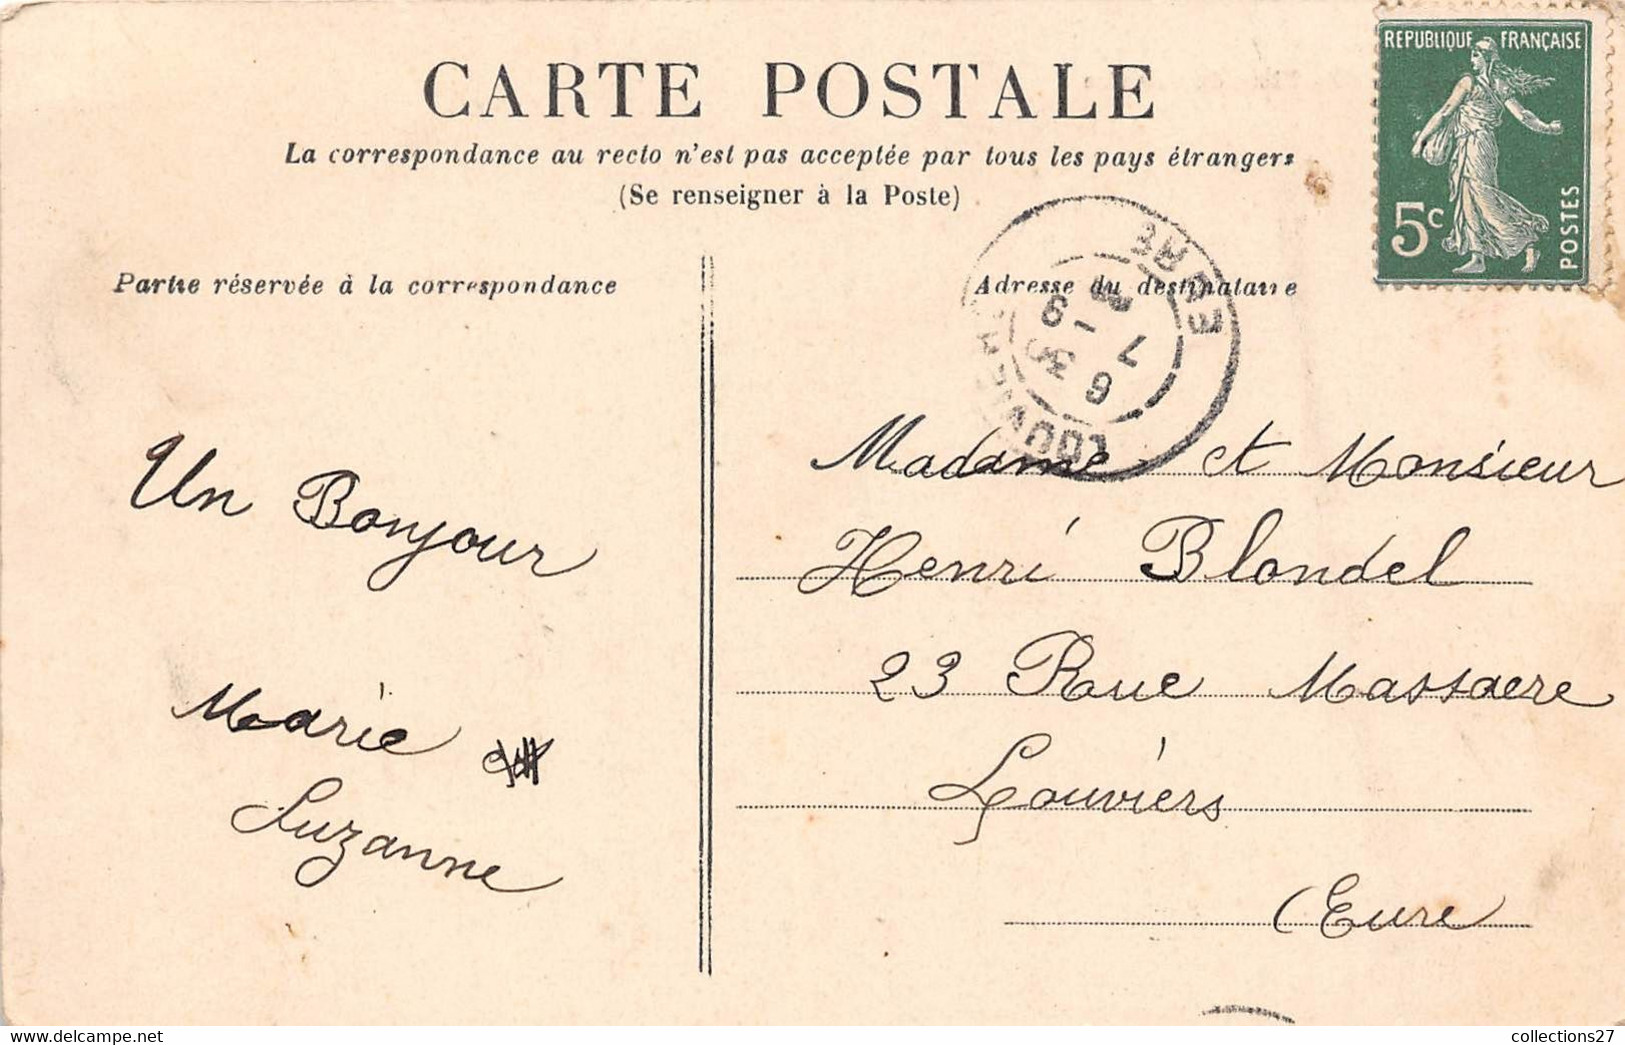 CARTE POSTALE
La correspondance au recto n'est pas acceptée par tous les pays étrangers
(Se renseigner à la Poste)
REPUBLIQUE FRANÇAISE
5c
POSTES
Partie réservée à la correspondance
Un Bonjour
Marie
Suzanne
Adresse du destinataire
EURE
Madame et Monsieur
Henri Blondel
23 Rue Massacre
Louviers
(Eure
collections27